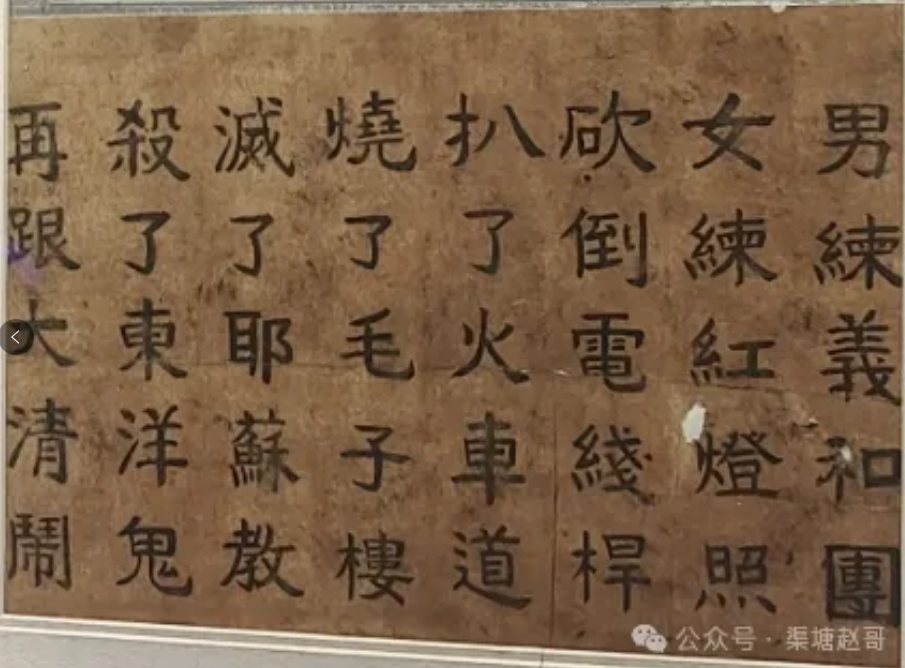 男練義和團
女練紅燈照
砍倒電綫桿
扒了火車道
燒了毛子樓
滅了耶蘇教
殺了東洋鬼
再跟大清鬧
公众号·渠塘赵哥